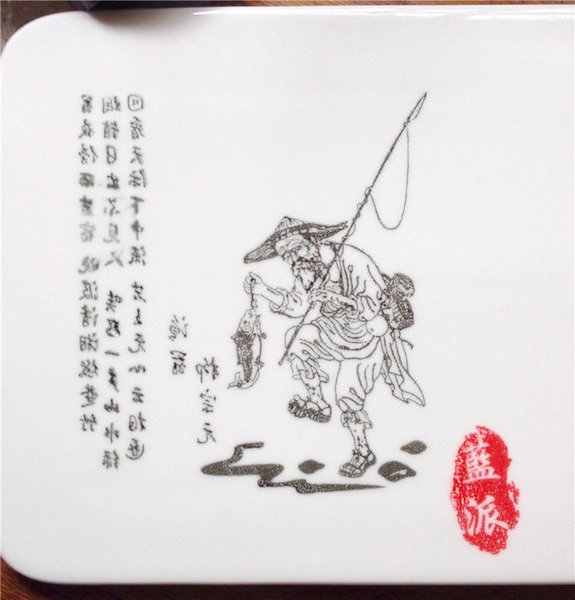 翁夜傍西岩宿 晓汲清湘燃楚竹
烟销日出不见人 欸乃一声山水绿
回看天际下中流 岩上无心云相逐
渔翁
柳宗元
藍派